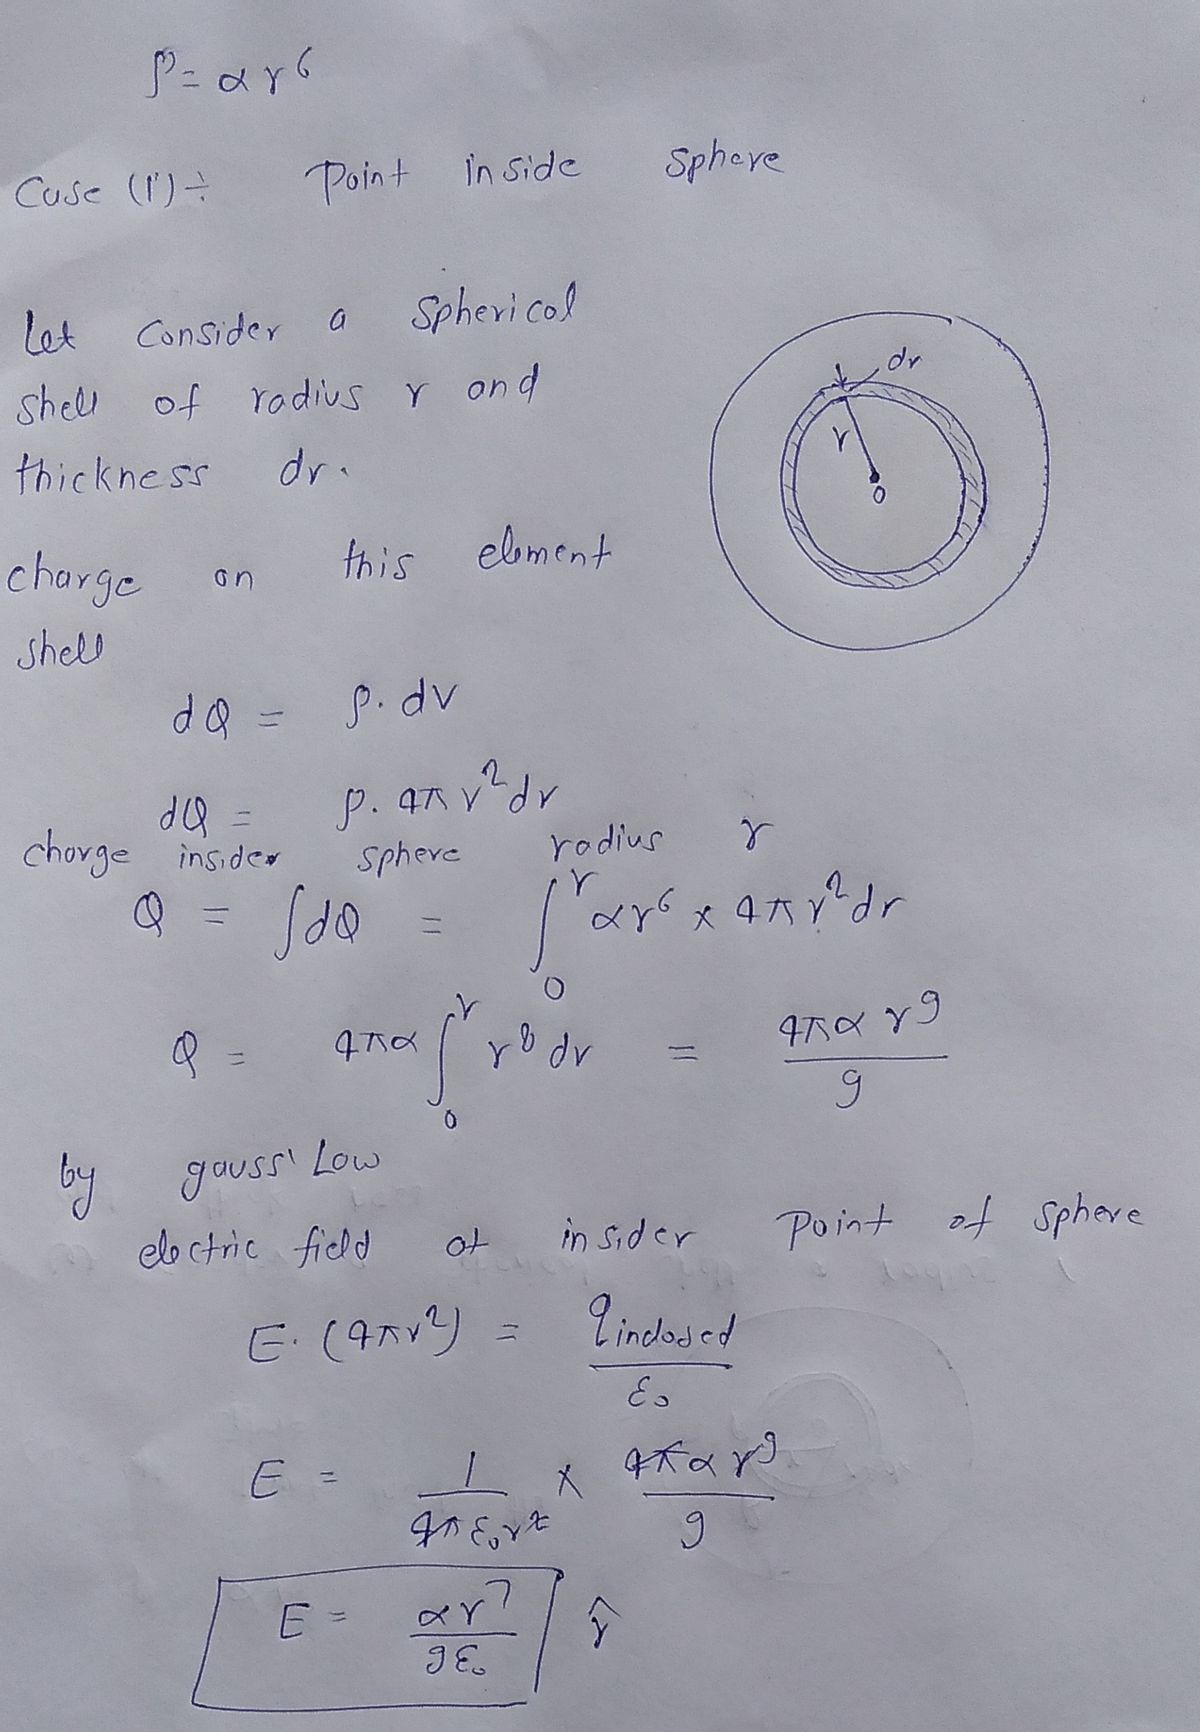 ρ = α r⁶
Case (i) ÷ Point inside sphere
Let Consider a Spherical
shell of radius r and
thickness dr.
dr
r
o
charge on this element
shell
dQ = ρ. dv
dQ = ρ. 4π r² dr
charge insider sphere radius r
Q = ∫dQ = ∫₀ʳ αr⁶ x 4π r² dr
Q = 4πα ∫₀ʳ r⁸ dr = 4πα r⁹ / 9
by gauss' Law
electric field at insider Point of sphere
E. (4πr²) = qinclosed / ε₀
E = 1 / 4π ε₀ r² x 4πα r⁹ / 9
E = αr⁷ / 9ε₀ r̂